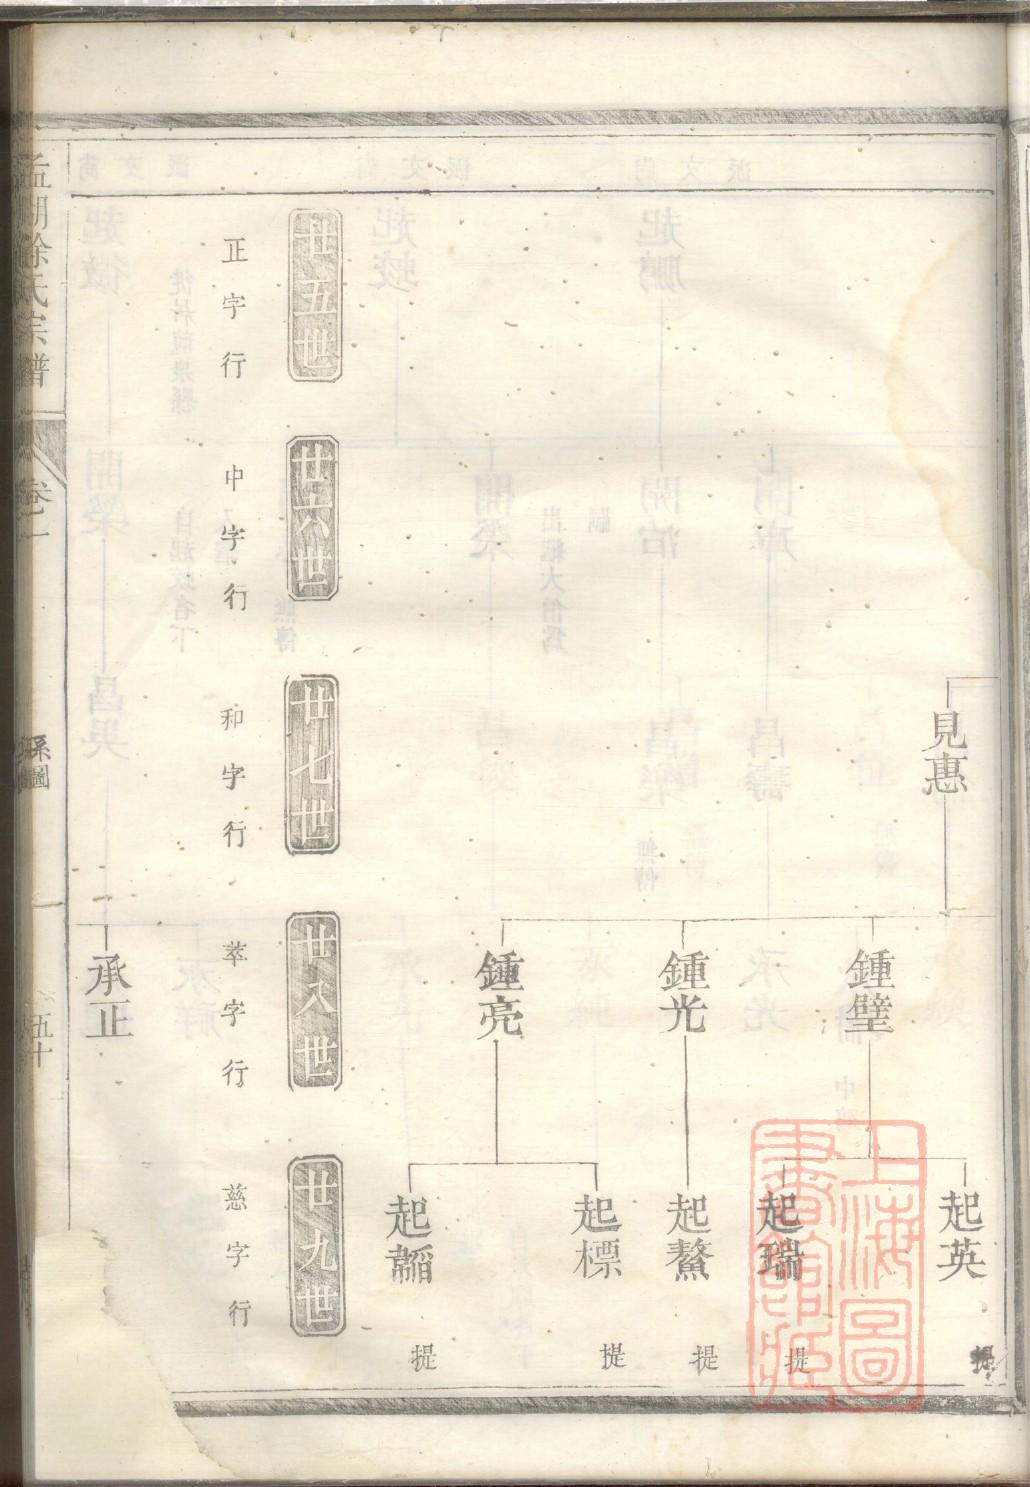 見惠
鍾璧
鍾光
鍾亮
起英
提
起瑞
提
起鰲
提
起標
提
起韜
提
廿五世
廿六世
廿七世
廿八世
廿九世
正字行
中字行
和字行
萃字行
慈字行
承正
孟湖徐氏宗譜
卷二
系圖
五十
上海圖書館藏